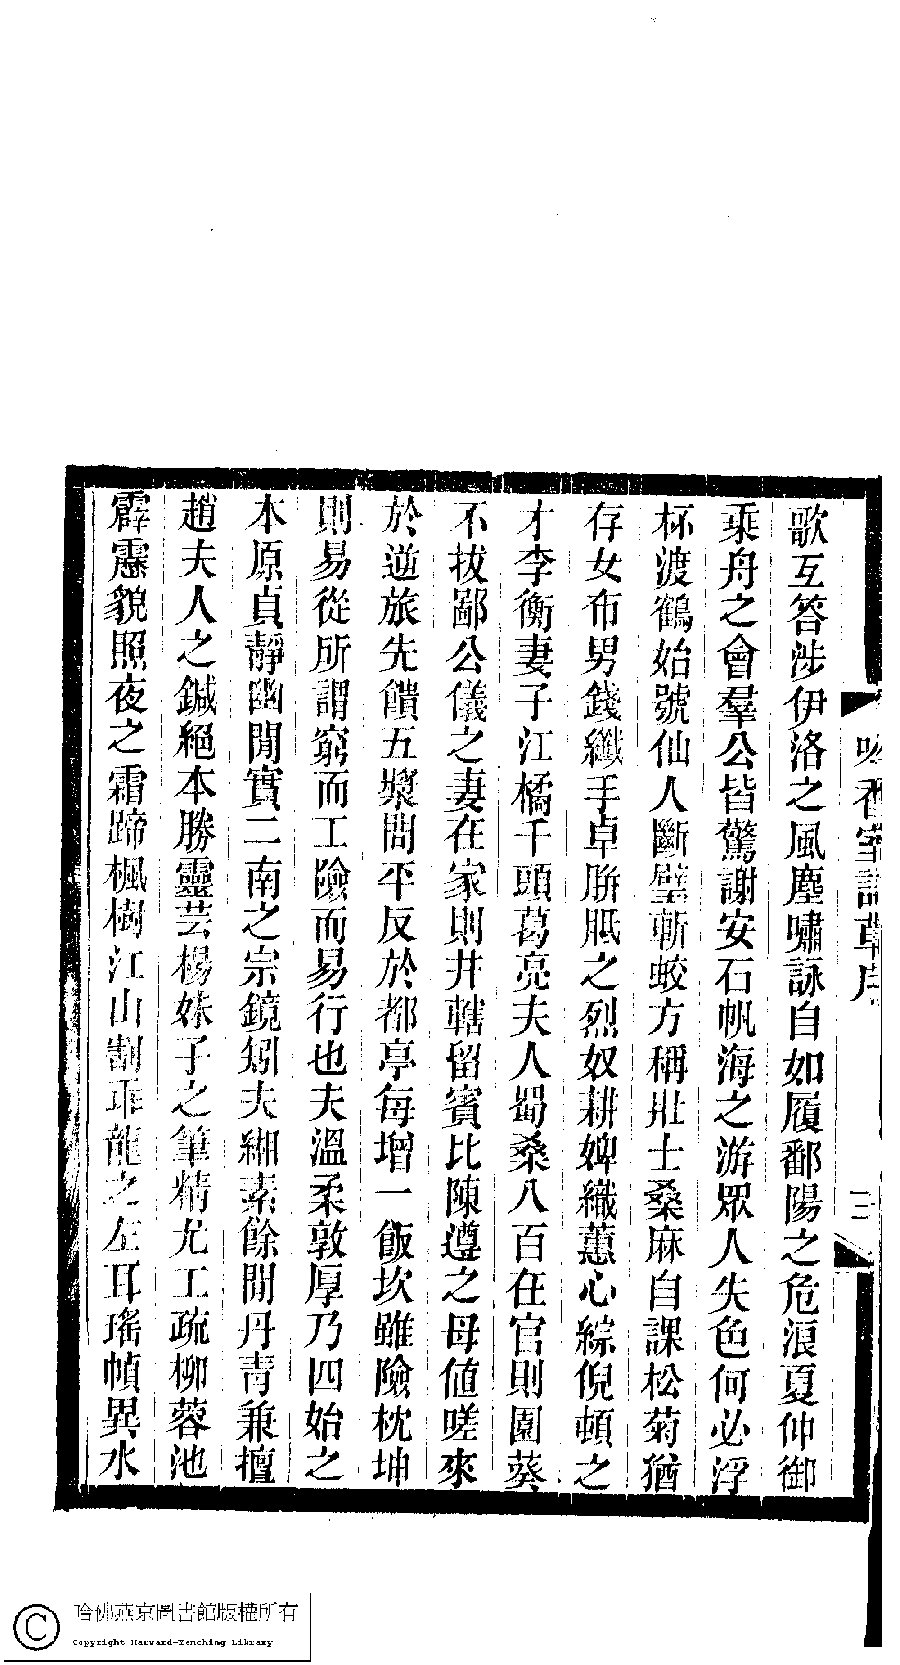 歌互答涉伊洛之風塵嘯詠自如履鄱陽之危浪夏仲御
乘舟之會羣公皆驚謝安石帆海之游眾人失色何必浮
杯渡鶴始號仙人斷璧斬蛟方稱壯士桑麻自課松菊猶
存女布男錢纖手卓胼胝之烈奴耕婢織蕙心綜倪頓之
才李衡妻子江橘千頭葛亮夫人蜀桑八百在官則園葵
不拔鄙公儀之妻在家則井轄留賓比陳遵之母値嗟來
於逆旅先饋五漿問平反於都亭每增一飯坎雖險枕坤
則易從所謂窮而工險而易行也夫溫柔敦厚乃四始之
本原貞靜幽閒實二南之宗鏡矧夫緗素餘閒丹青兼擅
趙夫人之鍼絕本勝靈芸楊妹子之筆精尤工疏柳蓉池
霹靂貌照夜之霜蹄楓樹江山割乖龍之左耳瑤幀異水
香室詩草序
三
哈佛燕京圖書館版權所有
Copyright Harvard-Yenching Library